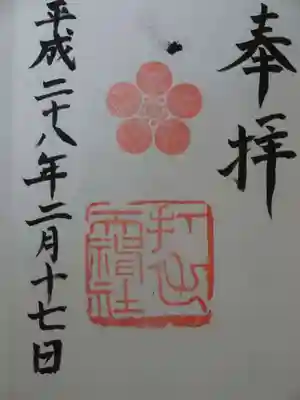 奉拝
打出
天神社
平成二十八年二月十七日